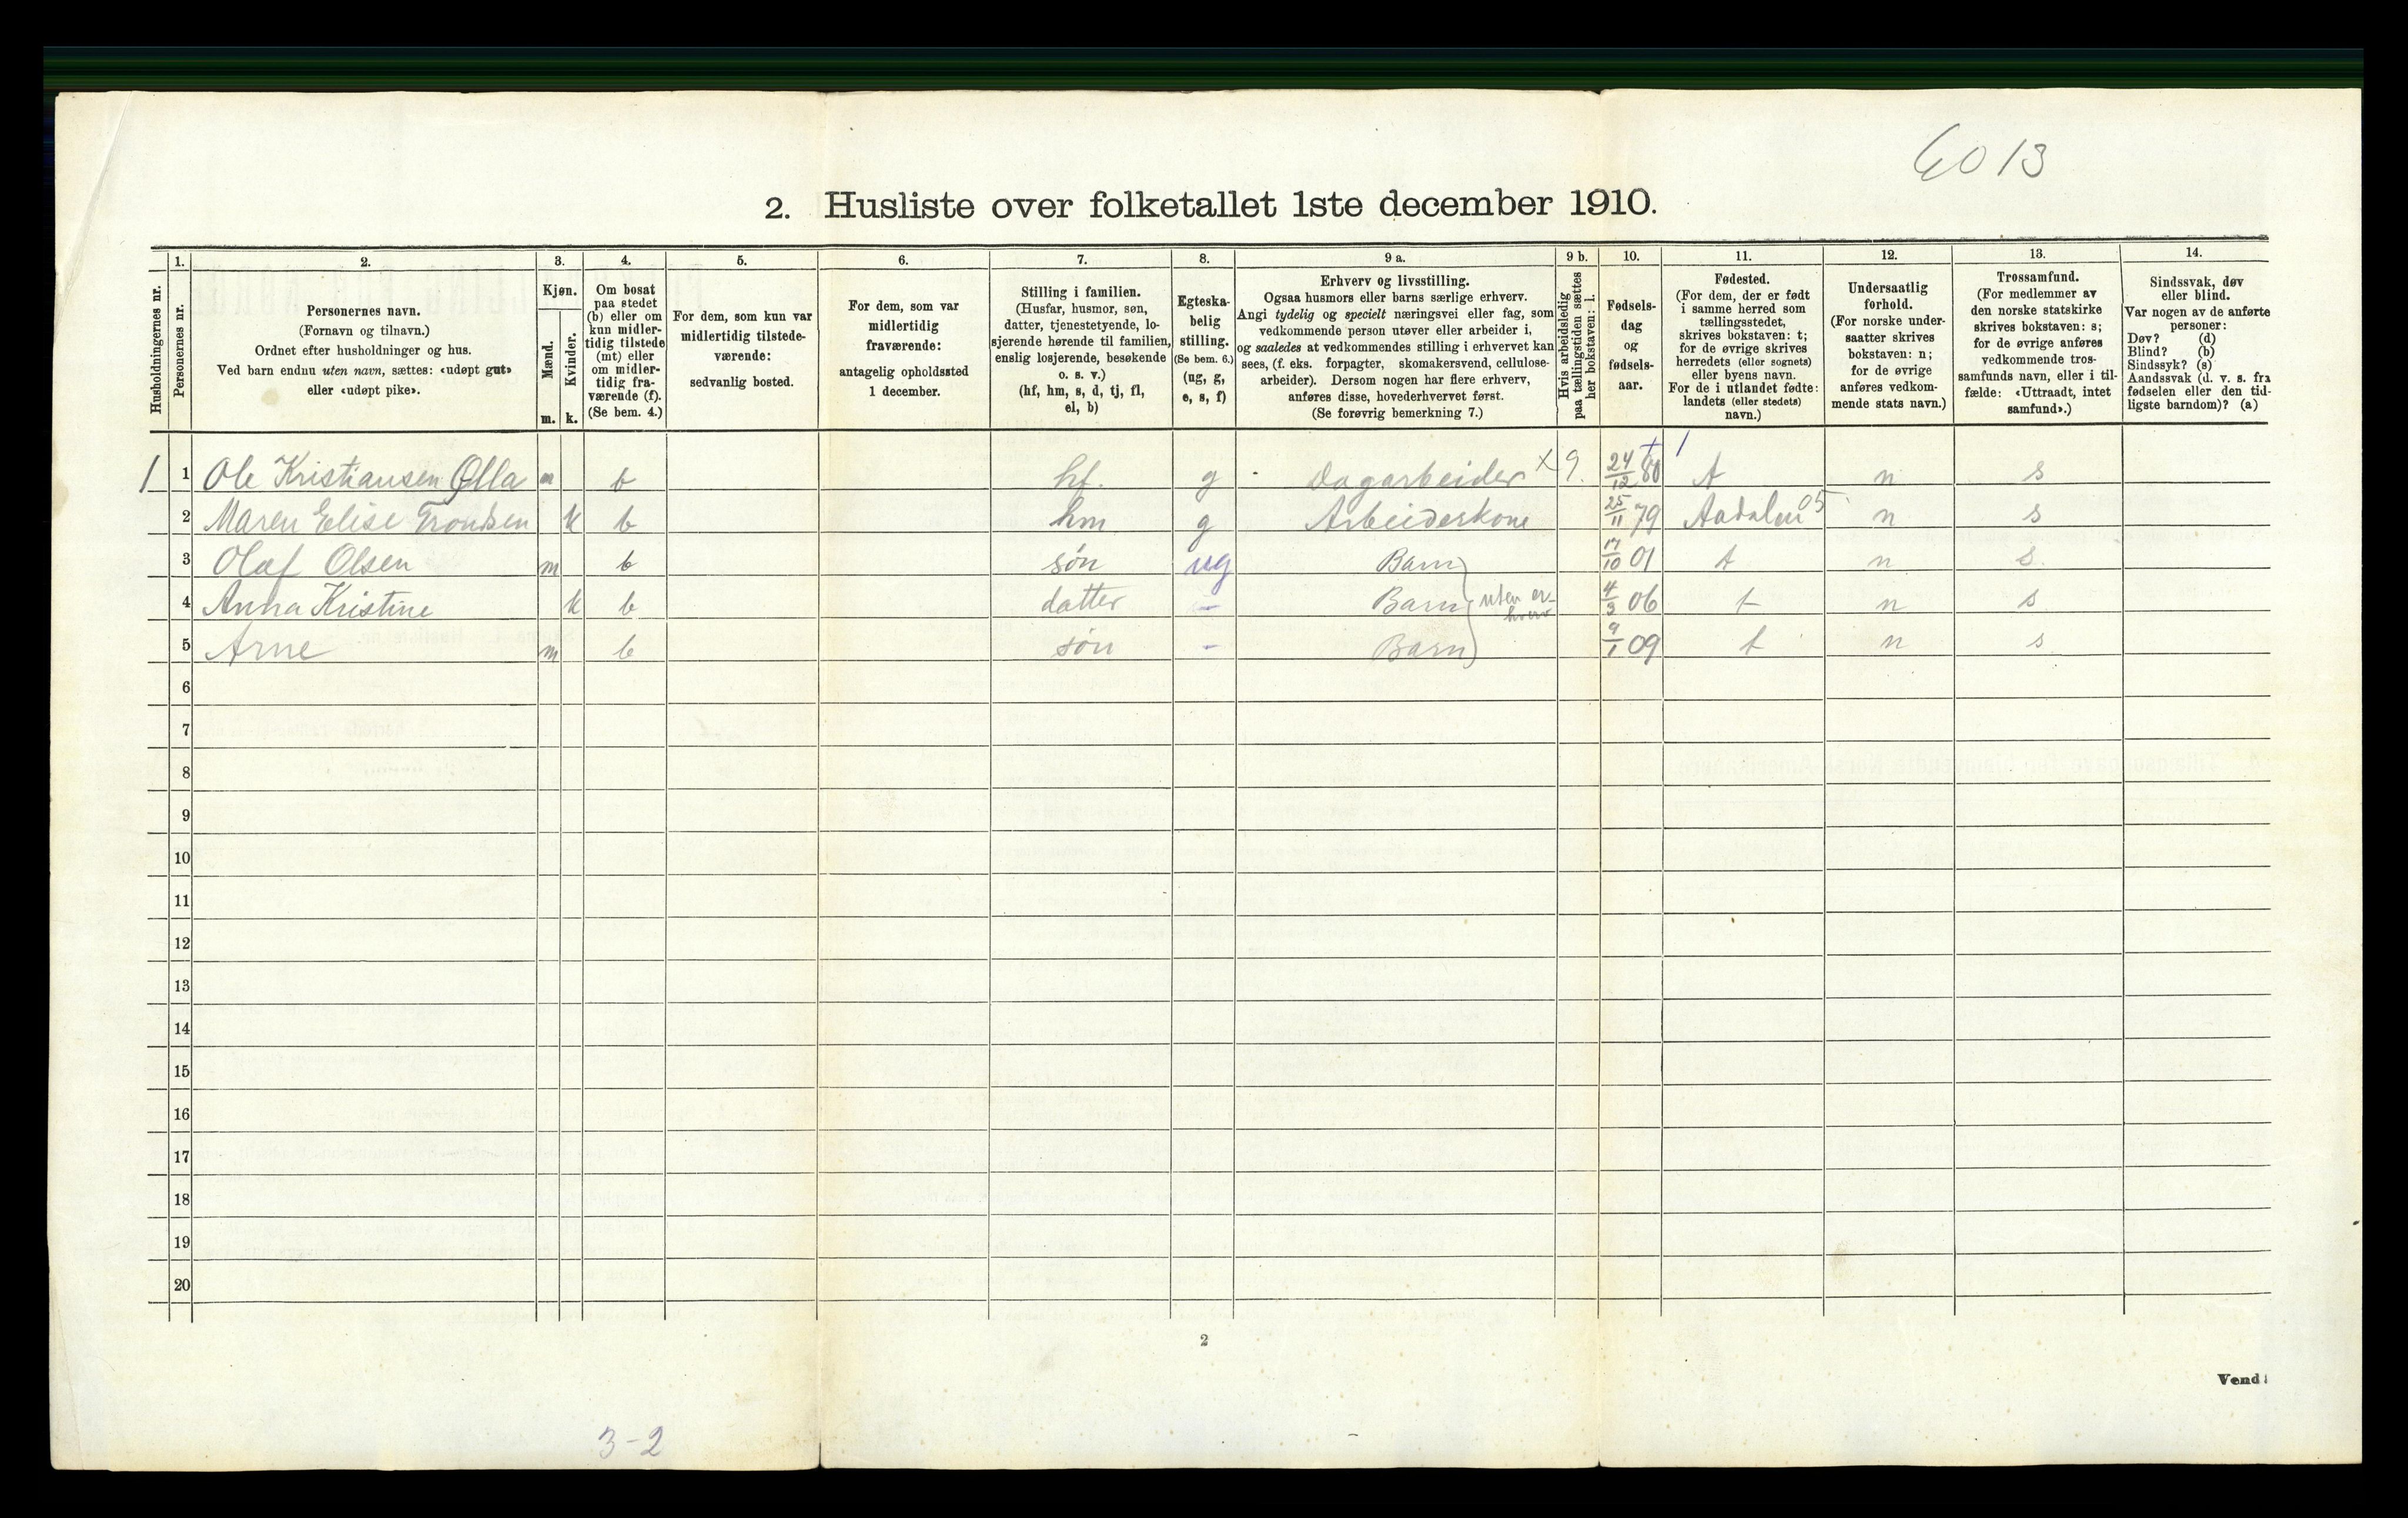 6013
2. Husliste over folketallet 1ste december 1910.
Husholdningernes nr.
1.
Personernes nr.
2.
Personernes navn.
(Fornavn og tilnavn.)
Ordnet efter husholdninger og hus.
Ved barn endnu uten navn, sættes: «udøpt gut»
eller «udøpt pike».
3.
Kjøn.
Mænd.
Kvinder.
m. k.
4.
Om bosat
paa stedet
(b) eller om
kun midler-
tidig tilstede
(mt) eller
om midler-
tidig fra-
værende (f).
(Se bem. 4.)
5.
For dem, som kun var
midlertidig tilstede-
værende:
sedvanlig bosted.
6.
For dem, som var
midlertidig
fraværende:
antagelig opholdssted
1 december.
7.
Stilling i familien.
(Husfar, husmor, søn,
datter, tjenestetyende, lo-
sjerende hørende til familien,
enslig losjerende, besøkende
o. s. v.)
(hf, hm, s, d, tj, fl,
el, b)
8.
Egteska-
belig
stilling.
(Se bem. 6.)
(ug, g,
e, s, f)
9 a.
Erhverv og livsstilling.
Ogsaa husmors eller barns særlige erhverv.
Angi tydelig og specielt næringsvei eller fag, som
vedkommende person utøver eller arbeider i,
og saaledes at vedkommendes stilling i erhvervet kan
sees, (f. eks. forpagter, skomakersvend, cellulose-
arbeider). Dersom nogen har flere erhverv,
anføres disse, hovederhvervet først.
(Se forøvrig bemerkning 7.)
9 b.
Hvis arbeidsledig
paa tællingstiden sættes
her bokstaven: l.
10.
Fødsels-
dag
og
fødsels-
aar.
11.
Fødested.
(For dem, der er født
i samme herred som
tællingsstedet,
skrives bokstaven: t;
for de øvrige skrives
herredets (eller sognets)
eller byens navn.
For de i utlandet fødte:
landets (eller stedets)
navn.)
12.
Undersaatlig
forhold.
(For norske under-
saatter skrives
bokstaven: n;
for de øvrige
anføres vedkom-
mende stats navn.)
13.
Trossamfund.
(For medlemmer av
den norske statskirke
skrives bokstaven: s;
for de øvrige anføres
vedkommende tros-
samfunds navn, eller i til-
fælde: «Uttraadt, intet
samfund».)
14.
Sindssvak, døv
eller blind.
Var nogen av de anførte
personer:
Døv? (d)
Blind? (b)
Sindssyk? (s)
Aandssvak (d. v. s. fra
fødselen eller den tid-
ligste barndom)? (a)
1 1 Ole Kristiansen Ølla m b hf. g Dagarbeider x 9. 24/12 80 t n s
2 Maren Elise Trondsen k b hm g Arbeiderkone 25/11 79 Aadalen 05 n s
3 Olaf Olsen m b søn ug Barn 17/10 01 t n s.
4 Anna Kristine k b datter - Barn uten er-hverv 4/3 06 t n s
5 Arne m b søn - Barn 9/1 09 t n s
6
7
8
9
10
11
12
13
14
15
16
17
18
19
20
2
Vend!
3-2